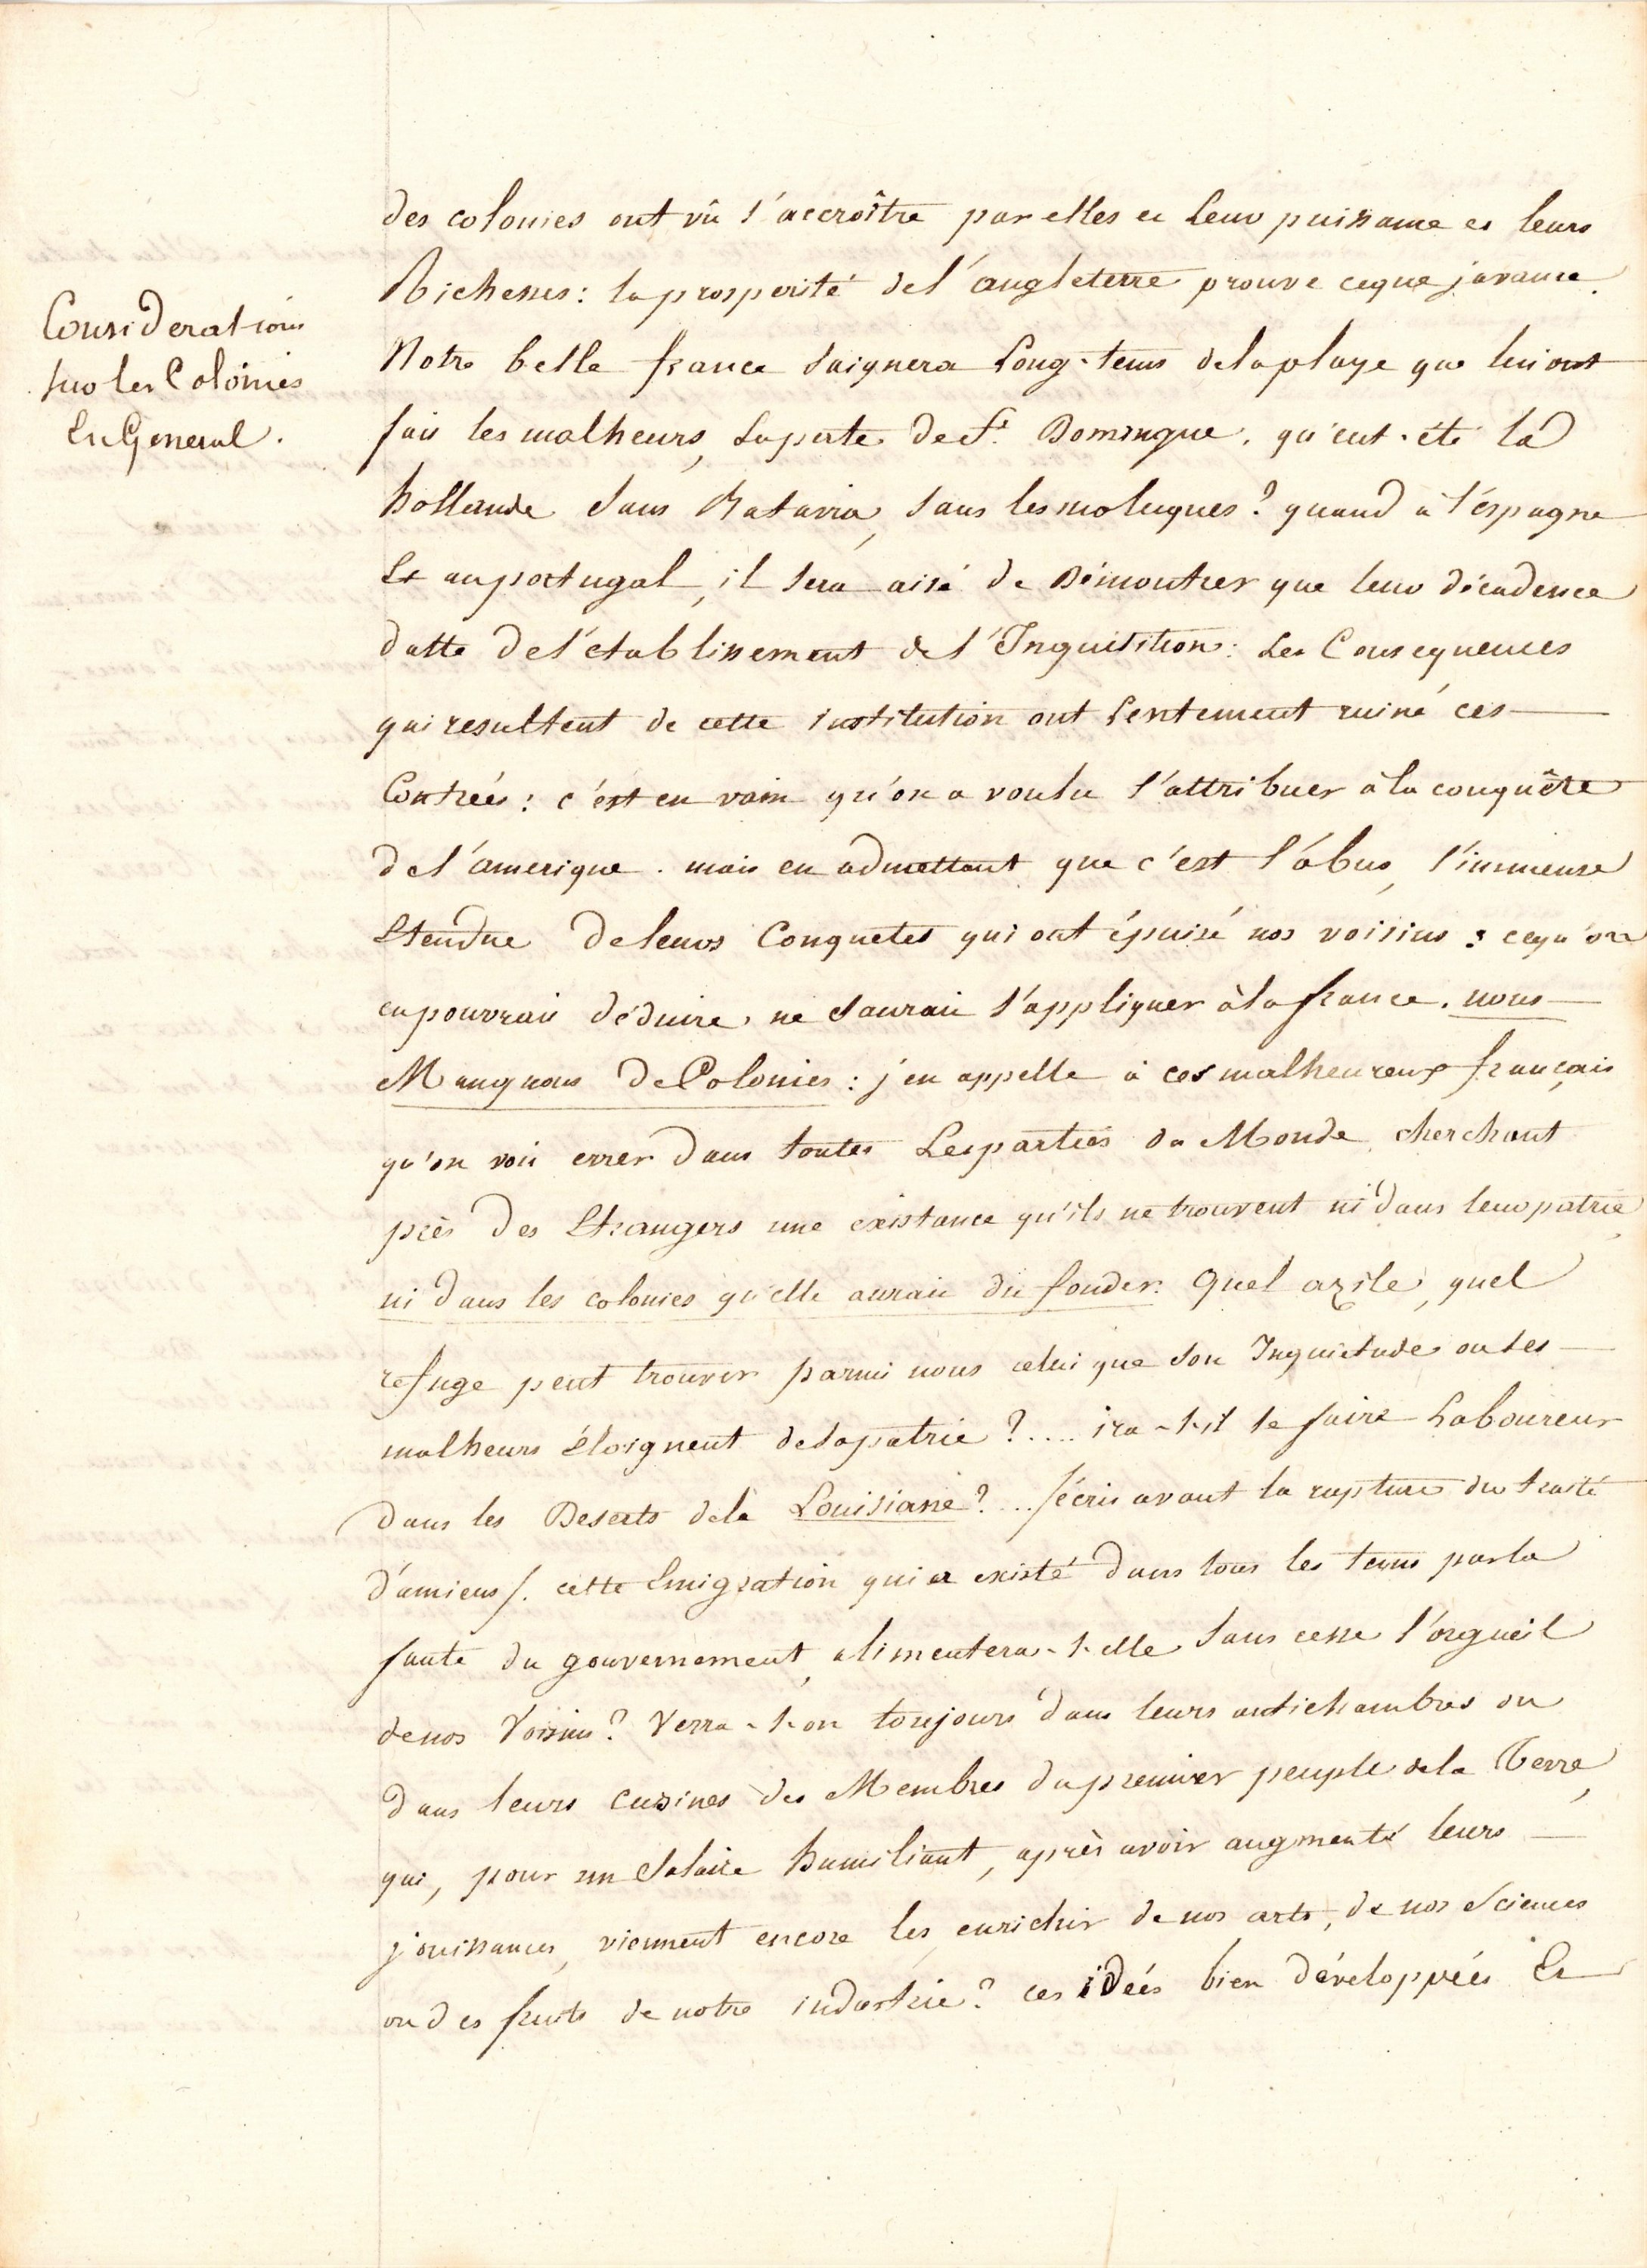 Considerations
sur les Colonies
En General.
des colonies ont vû s'accroître par elles et leur puissance et leurs
Richesses: la prosperité de l'angleterre prouve ceque j'avance.
Notre belle france saignera Long-tems de la playe que lui ont
fait les malheurs, la perte de St. Domingue. qu'eut-été la
hollande sans Batavia, sans les moluques? quand à l'éspagne
Et au portugal, il sera aisé de Démontrer que leur décadence
datte de l'établissement de l'Inquisition: Les Consequences
qui resultent de cette institution ont Lentement ruiné ces
Contrées: c'est en vain qu'on a voulu l'attribuer à la conquête
de l'amerique. mais en admettant que c'est l'abus, l'immense
Etendue de leurs Conquetes qui ont épuisé nos voisins: cequ'on
en pouvrait déduire ne saurait s'appliquer à la france. nous
Manquons de Colonies: j'en appelle à ces malheureux français
qu'on voit errer dans toutes Les parties du Monde, cherchant
près des Etrangers une existance qu'ils ne trouvent ni dans leur patrie,
ni dans les colonies qu'elle aurait dû fonder. Quel azile, quel
refuge peut trouver parmi nous celui que son Inquietude ou ses
malheurs éloignent de sa patrie?.... ira-t-il se faire Laboureur
dans les Deserts de la Louisiane?... /j'écris avant la rupture du traité
d'amiens/. cette Emigration qui a existé dans tous les tems par la
faute du gouvernement, alimentera-t-elle sans cesse l'orgueil
de nos Voisins? Verra-t-on toujours dans leurs antichambres ou
dans leurs cuisines des Membres du premier peuple de la Terre,
qui, pour un salaire humiliant, après avoir augmenté leurs
jouissances, viennent encore les enrichir de nos arts, de nos sciences
ou des fruits de notre industrie? ces idées bien développées Et